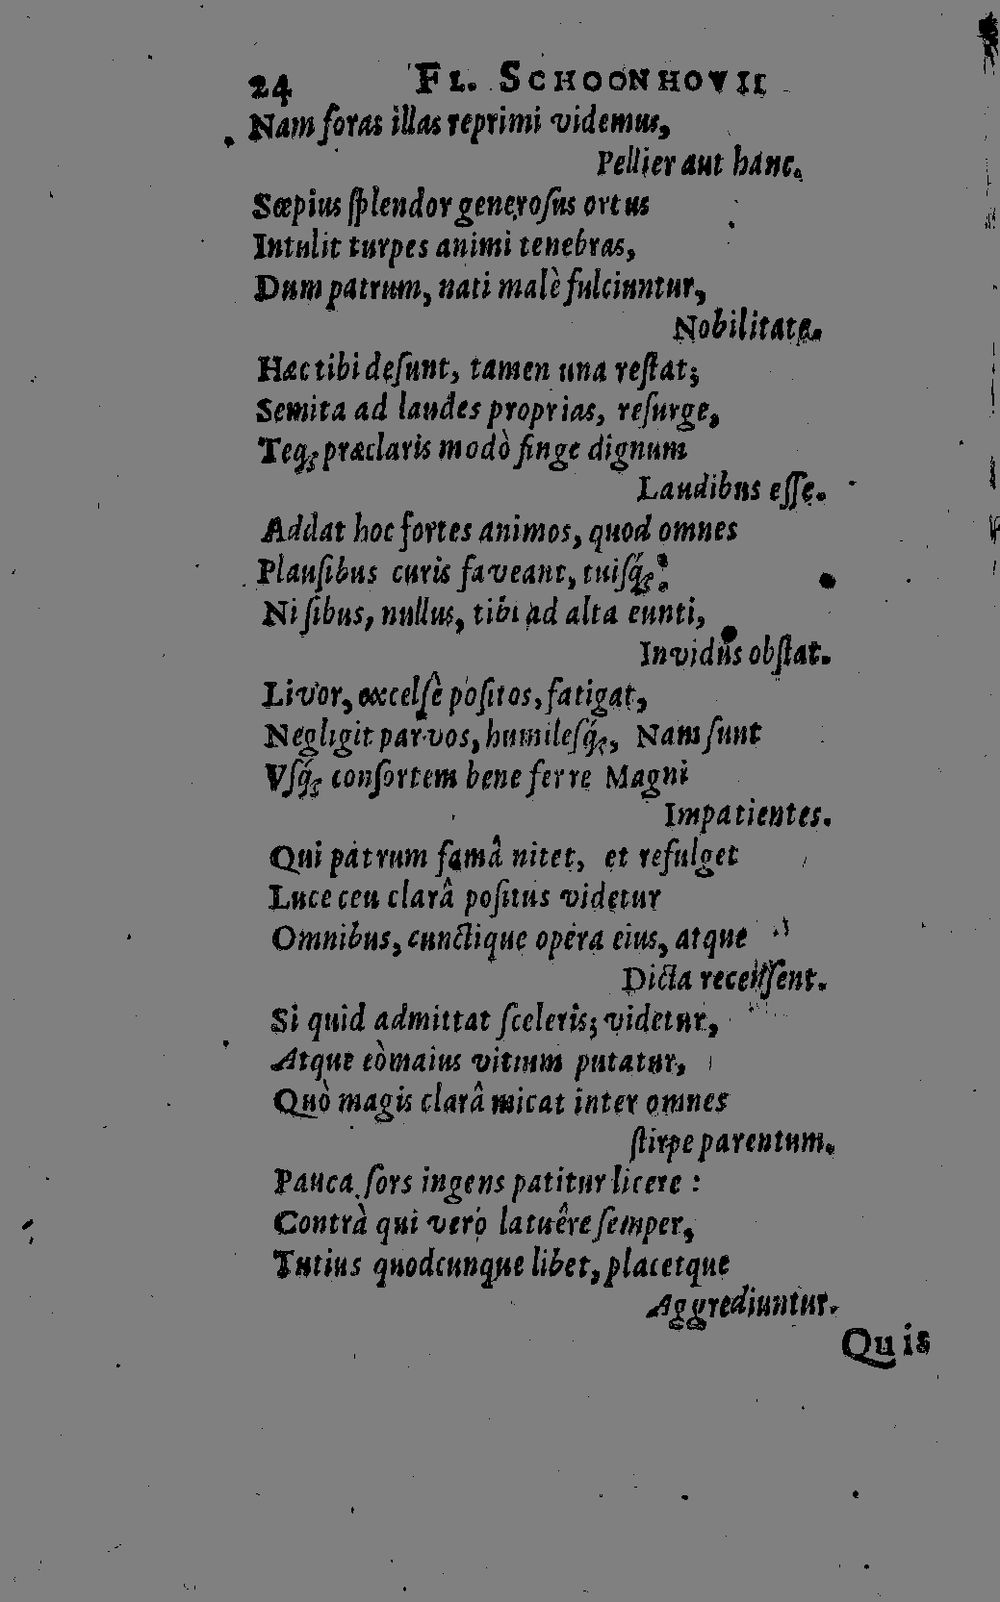 24 FL. SCHOONHOVII
Nam foras illas reprimi videmus,
Pellier aut hanc.
Sæpius ſplendor generoſus ortus
Intulit turpes animi tenebras,
Dum patrum, nati malè fulciuntur,
Nobilitate.
Hæc tibi deſunt, tamen una reſtat;
Semita ad laudes proprias, reſurge,
Teq; præclaris modò finge dignum
Laudibus eſſe.
Addat hoc fortes animos, quod omnes
Plauſibus curis faveant, tuiſq́;
Ni ſibus, nullus, tibi ad alta eunti,
Invidus obſtat.
Livor, excelſè poſitos, fatigat,
Negligit parvos, humileſq́;, Nam ſunt
Vſq́; conſortem bene ferre Magni
Impatientes.
Qui patrum famâ nitet, et refulget
Luce ceu clarâ poſitus videtur
Omnibus, cunctique opera eius, atque
Dicta recenſent.
Si quid admittat ſceleris; videtur,
Atque eò maius vitium putatur,
Quò magis clarâ micat inter omnes
ſtirpe parentum.
Pauca ſors ingens patitur licere :
Contrà qui vero latuêre ſemper,
Tutius quodcunque libet, placetque
Aggrediuntur.
Quis